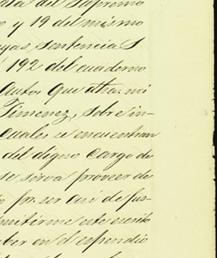 del Supremo
o y 19 del mismo
yas, sentencia S
192 del cuaderno
autos que atra. mi
Timenez, sobre in-
cuales se encuentran
del digno cargo de
se sirva proveer de
pr. ser asi de jus-
mitirme este escrito
ber en el espendio